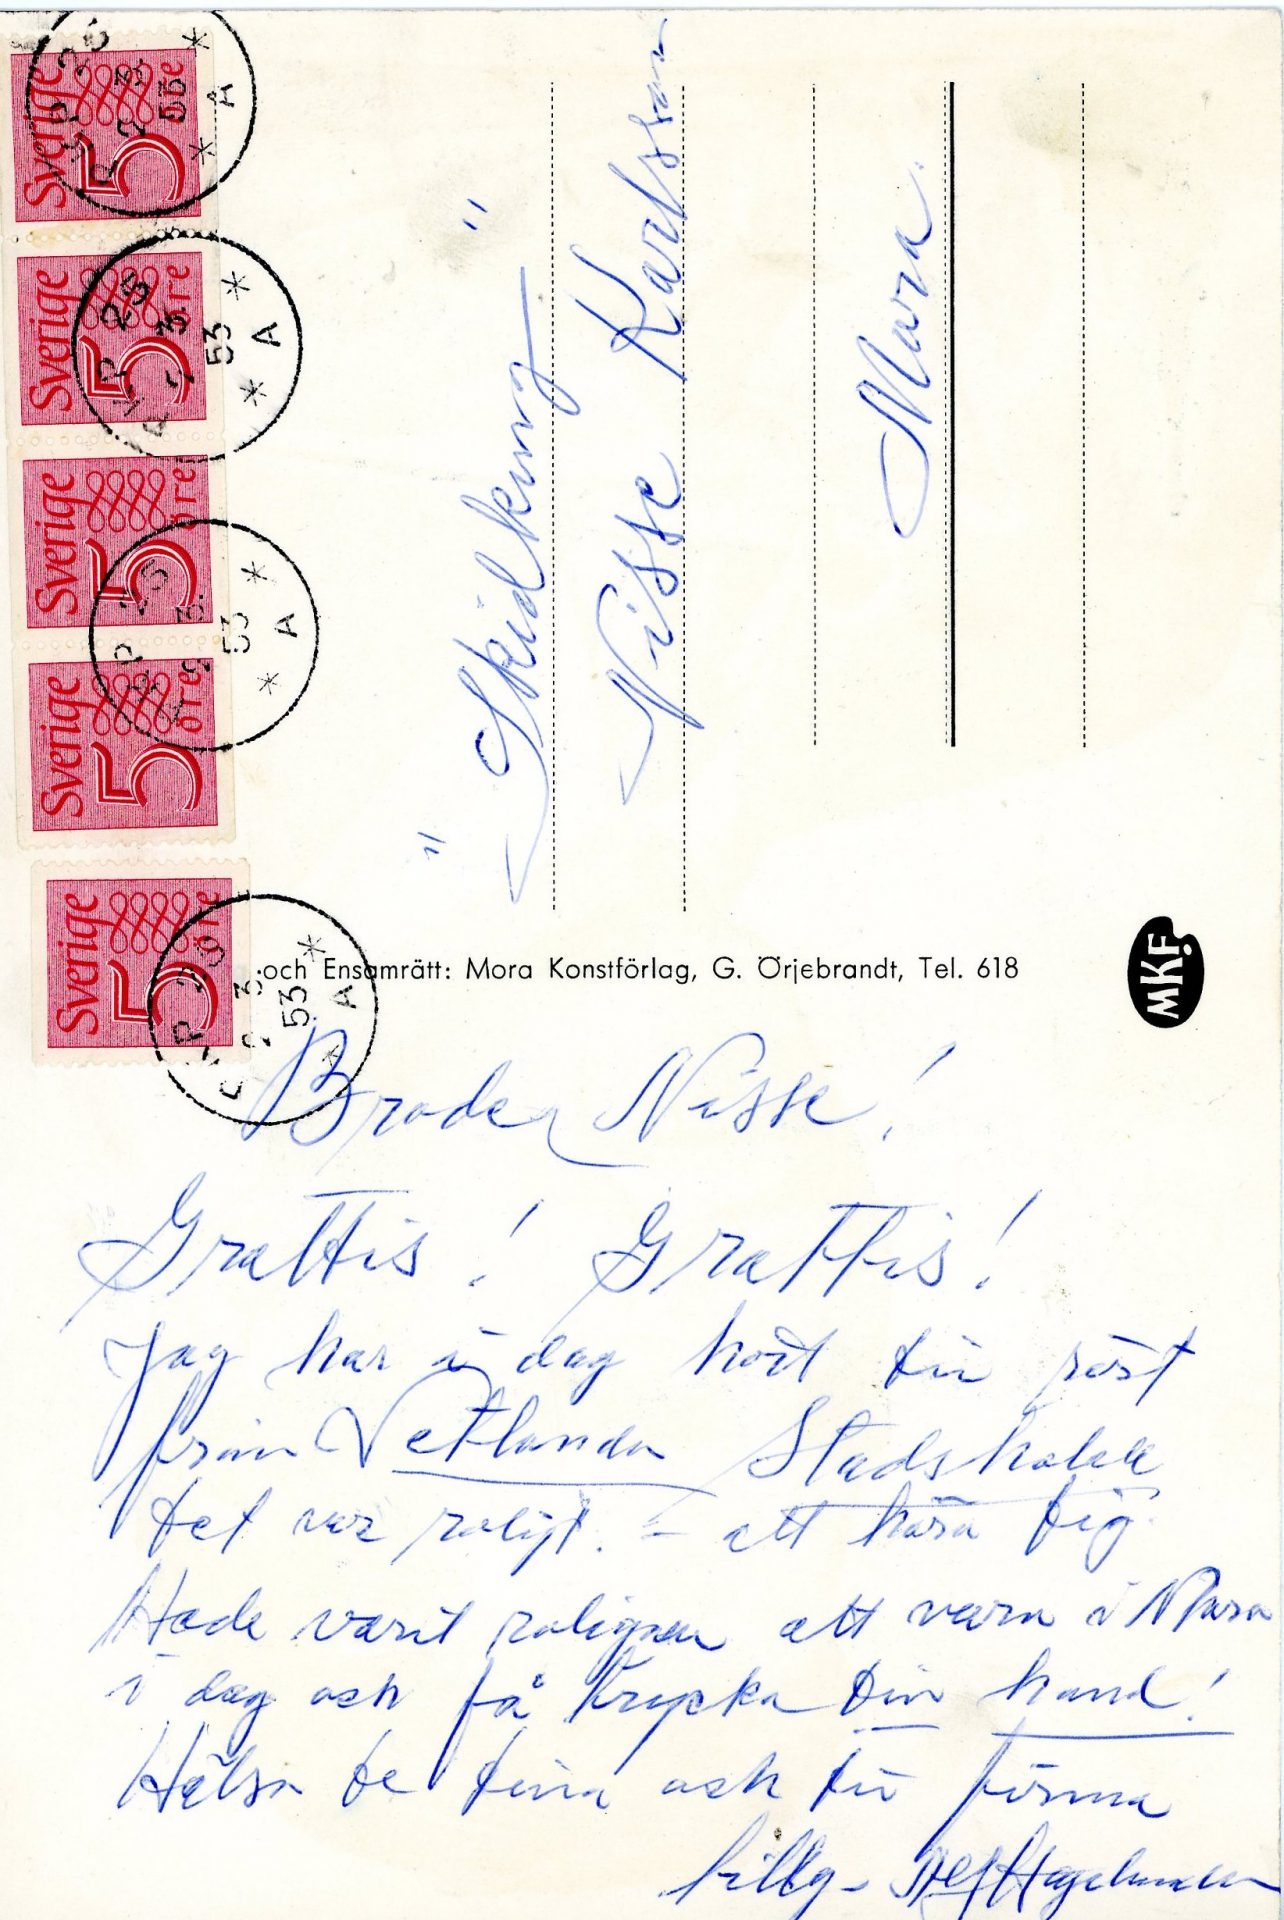 Sverige 5 öre
PKP 25
2 3
53
* A *
Sverige 5 öre
PKP 25
2 3
53
* A *
Sverige 5 öre
PKP 25
2 3
53
* A *
Sverige 5 öre
Sverige 5 öre
PKP 25
2 3
53
* A *
"Skidkung"
Nisse Karlsson
Mora.
och Ensamrätt: Mora Konstförlag, G. Örjebrandt, Tel. 618
MKF.
Broder Nisse!
Grattis! Grattis!
Jag har i dag hört din röst
från Vetlanda Stadshotell
det var roligt. - att höra dig.
Hade varit roligare att vara i Mora
i dag och få trycka din hand!
Hälsa de dina och din